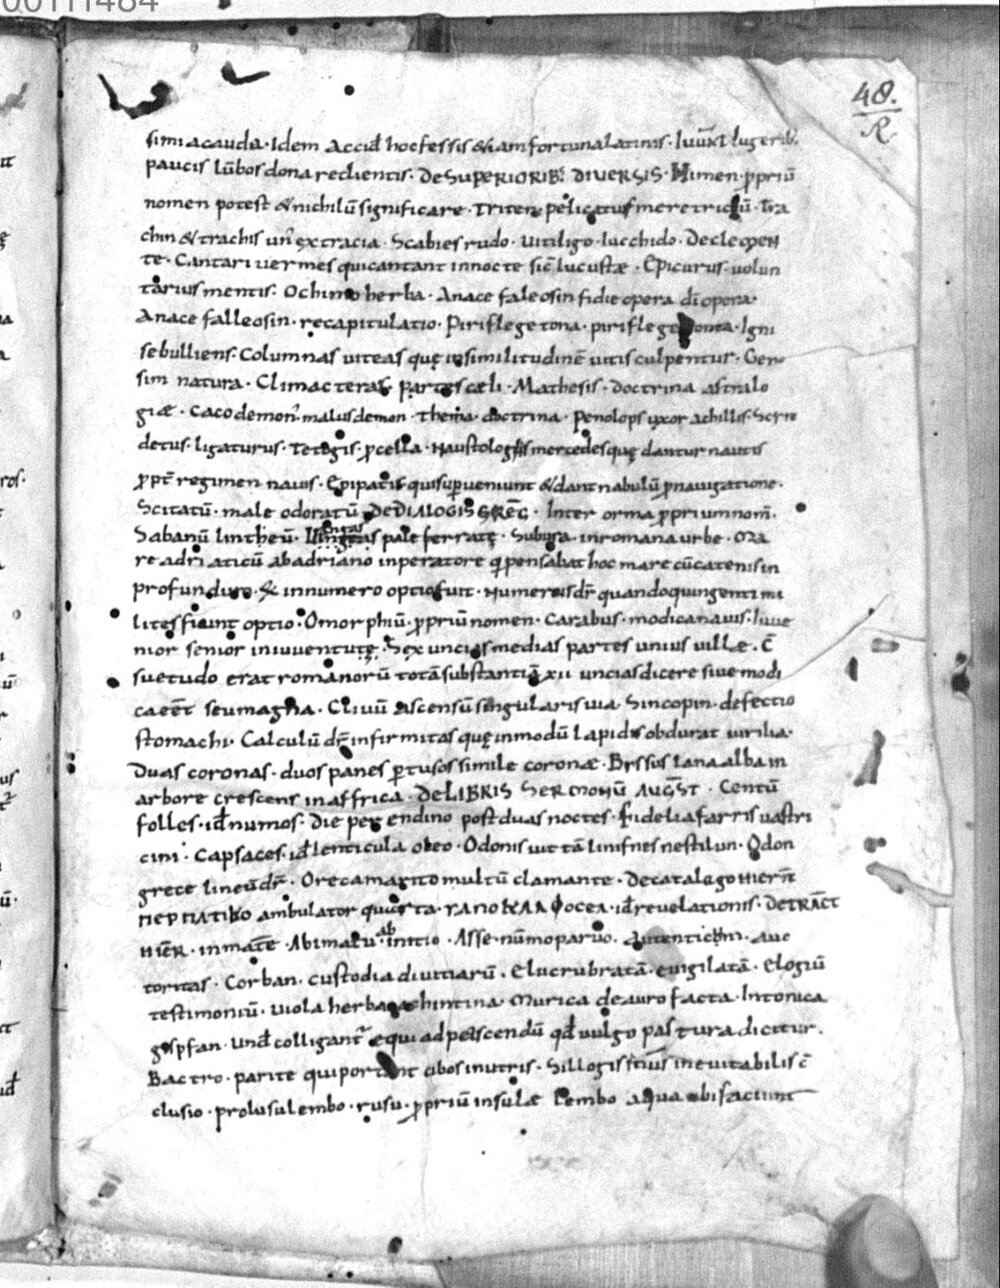 00111484
48.
R
simia cauda · Idem accid hoc fessis & iam fortuna latinis ·
paucis lūbos dona redientis · De SUPERIORIB: DIVERSIS · Himen · ꝓpriū
nomen potest & nichilū significare · Triten pelicatus meretricū · Tra
chin & trachis un ex tracia · Scabies rudo · Uitiligo · lucchido · De cleopen
te · Cantari uermes qui cantant in nocte sic lucustæ · Epicurus · uolun
tarius mentis · Ochimo herba · Anace fale osin fidie opera di opera ·
Anace falleosin · recapitulatio · Piriflegetona · piriflege · Igni
se bulliens · Columnas uiteas quę similitudinē uitis culpentur · Gen
sim natura · Climacteras partes cæli · Mathesis · doctrina astrolo
giæ · Cacodemon · malus demon · Thema · doctrina · Penolops uxor achillis ·
detus · ligaturus · Tetogis · ꝓcella · Naustologiis mercedes quę dantur nautis
ꝓpt regimen nauis · Epipatis qui suꝑueniunt & dant nabulū ꝓ nauigatione ·
Scitatū · male odoratū · DE DIALOGIS GREG · Inter orma ꝓprium nom ·
Sabanū lintheū · pale ferratę · Subura · in romana urbe · Ma
re adriaticū ab adriano inperatore q pensabat hoc mare cū catenis in
profundum · & innumero optio fuit · Numerus dr quando quingenti mi
lites fiunt optio · Omorphiū · ꝓpriū nomen · Carabus · modica nauis · Iuue
nior senior in iuuentute · Sex uncias medias partes unius uillæ · C
suetudo erat romanorū totā substantiā xii uncias dicere siue modi
ca eet seu magna · Cliuū ascensū singularis uia · Sincopin · defectio
stomachi · Calculū dr infirmitas quę in modū lapidis obdurat uirilia ·
Duas coronas · duos panes ꝑtusos simile coronæ · Bissus lana alba in
arbore crescens in affrica · DE LIBRIS SERMONŪ AUGST · Centū
folles · id numos · Die pependino post duas noctes · Fidelia farris uastri
cini · Capsaces · id lenticula oleo · Odonis uittā lini fnes nestilun · Odon
grece lineū dr · Orecamagito multū clamante · De catalago HIERN
ambulator · id reuelationis · DETRACT
HIER · in mate · Abimatu ab initio · Asse · nūmo paruo · Autenticum · auc
toritas · Corban · custodia diuitiarū · Elucubratā · euigilatā · Elogiū
testimoniū · Uiola herba iachintina · Murica de auro facta · In tonica
Und colligant equi ad pascendū qd uulgo pastura dicitur ·
Bactro · parite qui portant cibos in utris · Sillogissmus ineuitabilis c
clusio · prolusu lembo · rusu · ꝓpriū insulæ Lembo aqua ubi faciunt